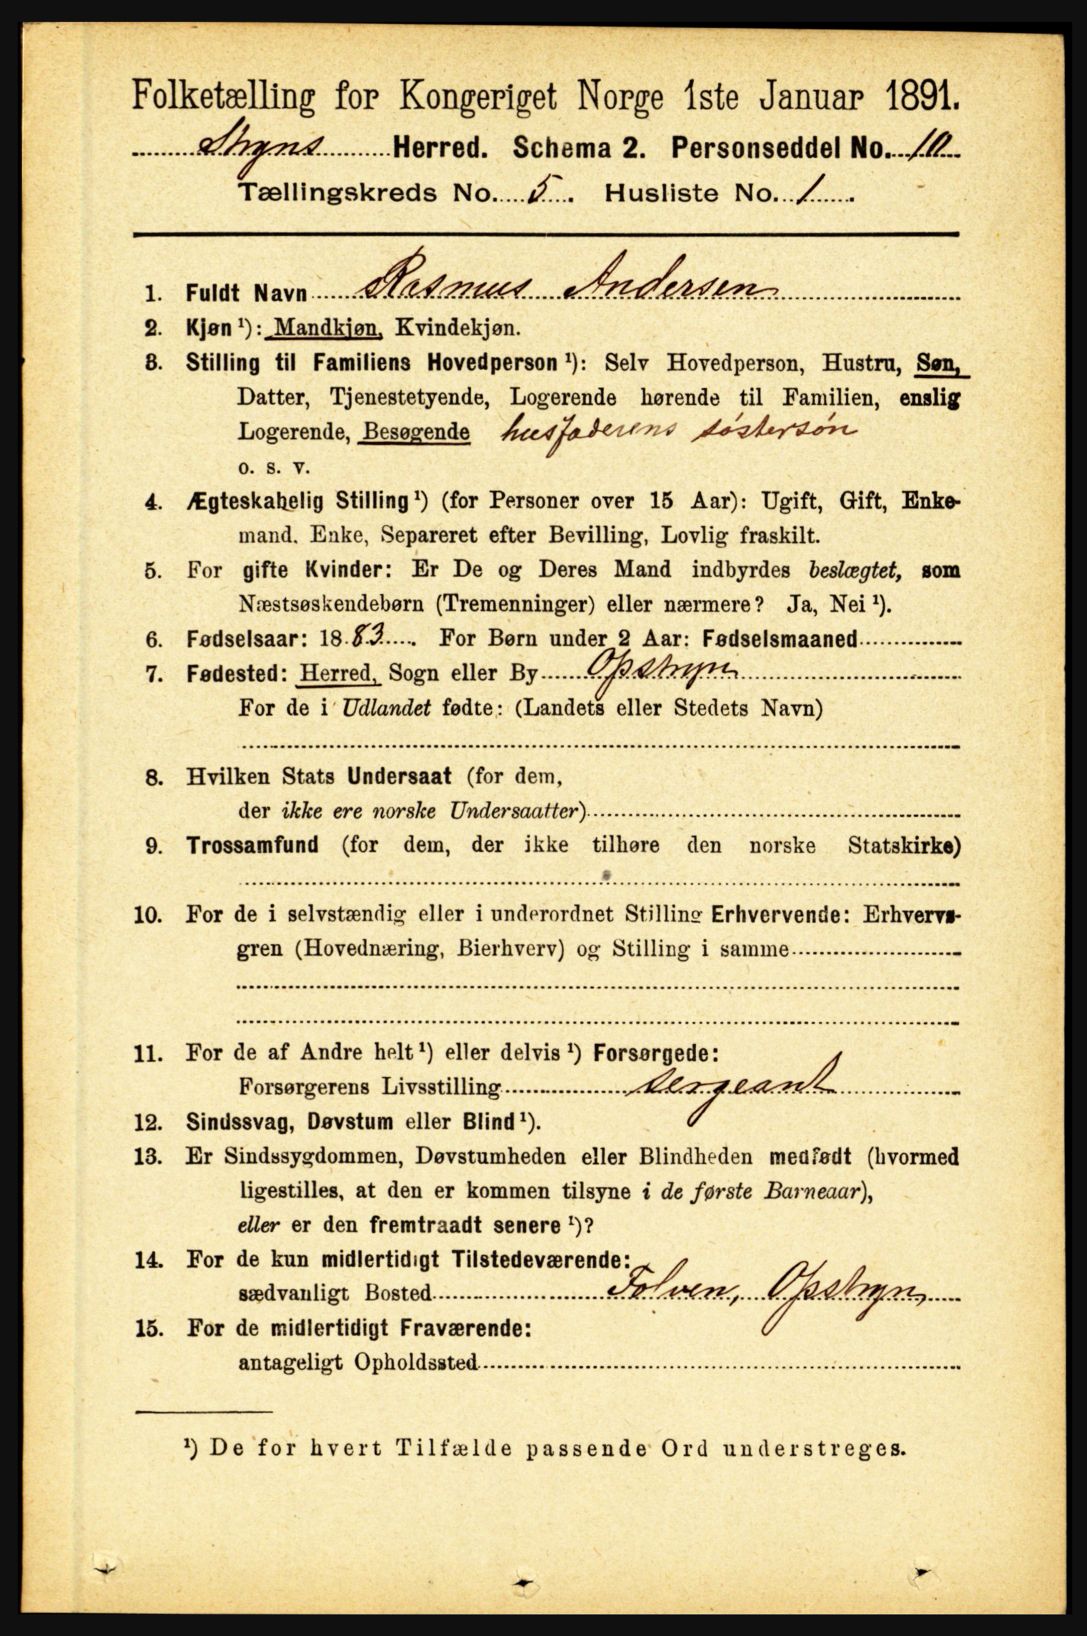 Folketælling for Kongeriget Norge 1ste Januar 1891.
Stryns Herred. Schema 2. Personseddel No. 10
Tællingskreds No. 5. Husliste No. 1.
1. Fuldt Navn Rasmus Andersen
2. Kjøn ¹): Mandkjøn, Kvindekjøn.
3. Stilling til Familiens Hovedperson ¹): Selv Hovedperson, Hustru, Søn,
Datter, Tjenestetyende, Logerende hørende til Familien, enslig
Logerende, Besøgende husfaderens søstersøn
o. s. v.
4. Ægteskabelig Stilling ¹) (for Personer over 15 Aar): Ugift, Gift, Enke-
mand. Enke, Separeret efter Bevilling, Lovlig fraskilt.
5. For gifte Kvinder: Er De og Deres Mand indbyrdes beslægtet, som
Næstsøskendebørn (Tremenninger) eller nærmere? Ja, Nei ¹).
6. Fødselsaar: 1883. For Børn under 2 Aar: Fødselsmaaned
7. Fødested: Herred, Sogn eller By Opstryn
For de i Udlandet fødte: (Landets eller Stedets Navn)
8. Hvilken Stats Undersaat (for dem,
der ikke ere norske Undersaatter)
9. Trossamfund (for dem, der ikke tilhøre den norske Statskirke)
10. For de i selvstændig eller i underordnet Stilling Erhvervende: Erhvervs-
gren (Hovednæring, Bierhverv) og Stilling i samme
11. For de af Andre helt ¹) eller delvis ¹) Forsørgede:
Forsørgerens Livsstilling sergeant
12. Sindssvag, Døvstum eller Blind ¹).
13. Er Sindssygdommen, Døvstumheden eller Blindheden medfødt (hvormed
ligestilles, at den er kommen tilsyne i de første Barneaar),
eller er den fremtraadt senere ¹)?
14. For de kun midlertidigt Tilstedeværende:
sædvanligt Bosted Folven, Opstryn
15. For de midlertidigt Fraværende:
antageligt Opholdssted
¹) De for hvert Tilfælde passende Ord understreges.